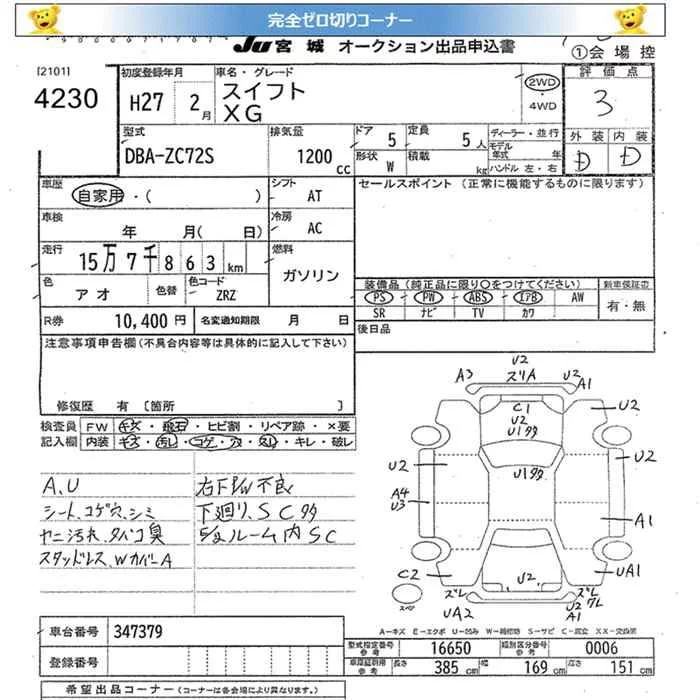 完全ゼロ切りコーナー
JU 宮城 オークション出品申込書
①会場控
[2101]
4230
初度登録年月
H27 2月
車名・グレード
スイフト
XG
2WD
・
4WD
評価点
3
外装 内装
D D
型式
DBA-ZC72S
排気量
1200 cc
ドア 5
定員 5人
形状 W
積載 kg
ディーラー・並行
モデル年式 年
ハンドル 左・右
車歴
自家用・( )
シフト
AT
セールスポイント (正常に機能するものに限ります)
車検
年 月( 日)
冷房
AC
走行
15万7千863km
燃料
ガソリン
色
アオ
色替
色コード
ZRZ
装備品 (純正品に限り○をつけてください)
新車保証書
PS PW ABS エアB AW
SR ナビ TV カワ
有・無
R券 10,400円
名変通知期限 月 日
後日品
注意事項申告欄(不具合内容等は具体的に記入して下さい)
修復歴 有 〔箇所 〕
検査員
記入欄
FW キズ・飛石・ヒビ割・リペア跡・×要
内装 キズ・汚レ・コゲ・穴・スレ・キレ・破レ
A、U
シート、コゲ穴、シミ
ヤニ汚れ、タバコ臭
スタッドレス、WカバーA
右FP/W不良
下廻り、SC多
E/gルーム内SC
U2
A3 スリA U2 A1
C1
U2
U1多
U2
U1多
U2
U2
A4
U3
A1
C2
U2
UA1
スペア
ズレ
UA2
ズレ
ワレ
U2
A1
A-キズ E-エクボ U-凹み W-補修跡 S-サビ C-腐食 XX-交換済
車台番号 347379
登録番号
型式指定番号
参考
16650
類別区分番号
参考
0006
車庫証明用
参考
長さ 385 cm 幅 169 cm 高さ 151 cm
希望出品コーナー (コーナーは各会場により異なります。)